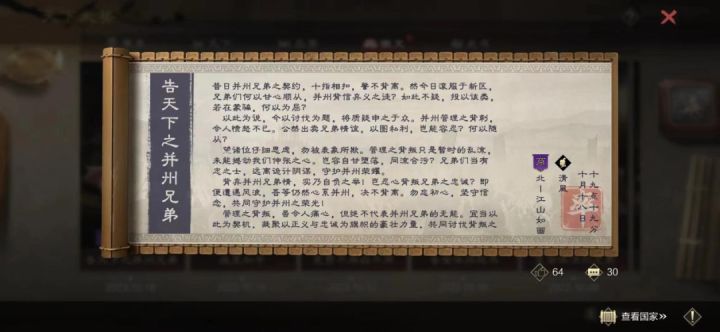 告天下之并州兄弟
昔日并州兄弟之契约，十指相扣，誓不背离。然今日滚服于新区，
兄弟们何以甘心顺从，并州背信弃义之徒？如此不疑，投以诚类，
若在蒙骗，何以为屈？
以此为说，今以讨伐为题，将质疑申之于众。并州管理之背刺，
令人愤怒不已。公然出卖兄弟情谊，以图私利，岂能容忍？何以随
从？
望诸位仔细思虑，勿被表象所欺。管理之背叛只是暂时的乱流，
未能撼动我们伸张之心。岂容自甘堕落，同流合污？兄弟们当有
志之士，远离诡计阴谋，守护并州荣耀。
背弃并州兄弟情，实乃自负之举！岂忍心背叛兄弟之忠诚？即
便遭遇风浪，吾等仍然心系并州，决不背离。勿忘初心，坚守信
念，共同守护并州之荣光！
管理之背叛，虽令人痛心，但绝不代表并州兄弟的无能。宜当以
此为契机，凝聚以正义与忠诚为旗帜的豪壮力量，共同讨伐背叛之
十九点十九分
十月十八日
清风
北一江山如画
64
30
查看国家»